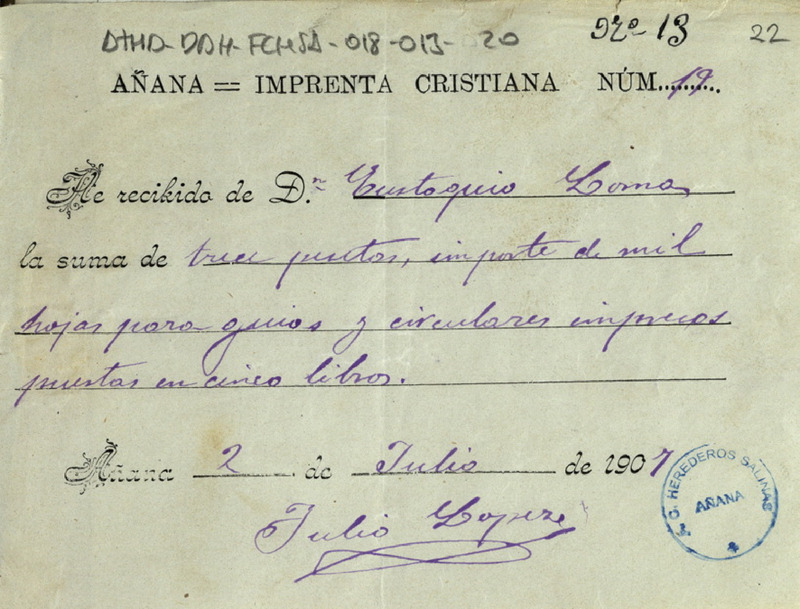 ATHA-DAH-FCHSA-018-013-020
Nº 13
22
AÑANA = IMPRENTA CRISTIANA NÚM. 19
He recibido de D.n Eustaquio Loma
la suma de trece pesetas, importe de mil
hojas para guias y circulares impresos
puestas en cinco libros.
Añana 2 de Julio de 1907
Julio Lopez
C. HEREDEROS SALINAS
AÑANA